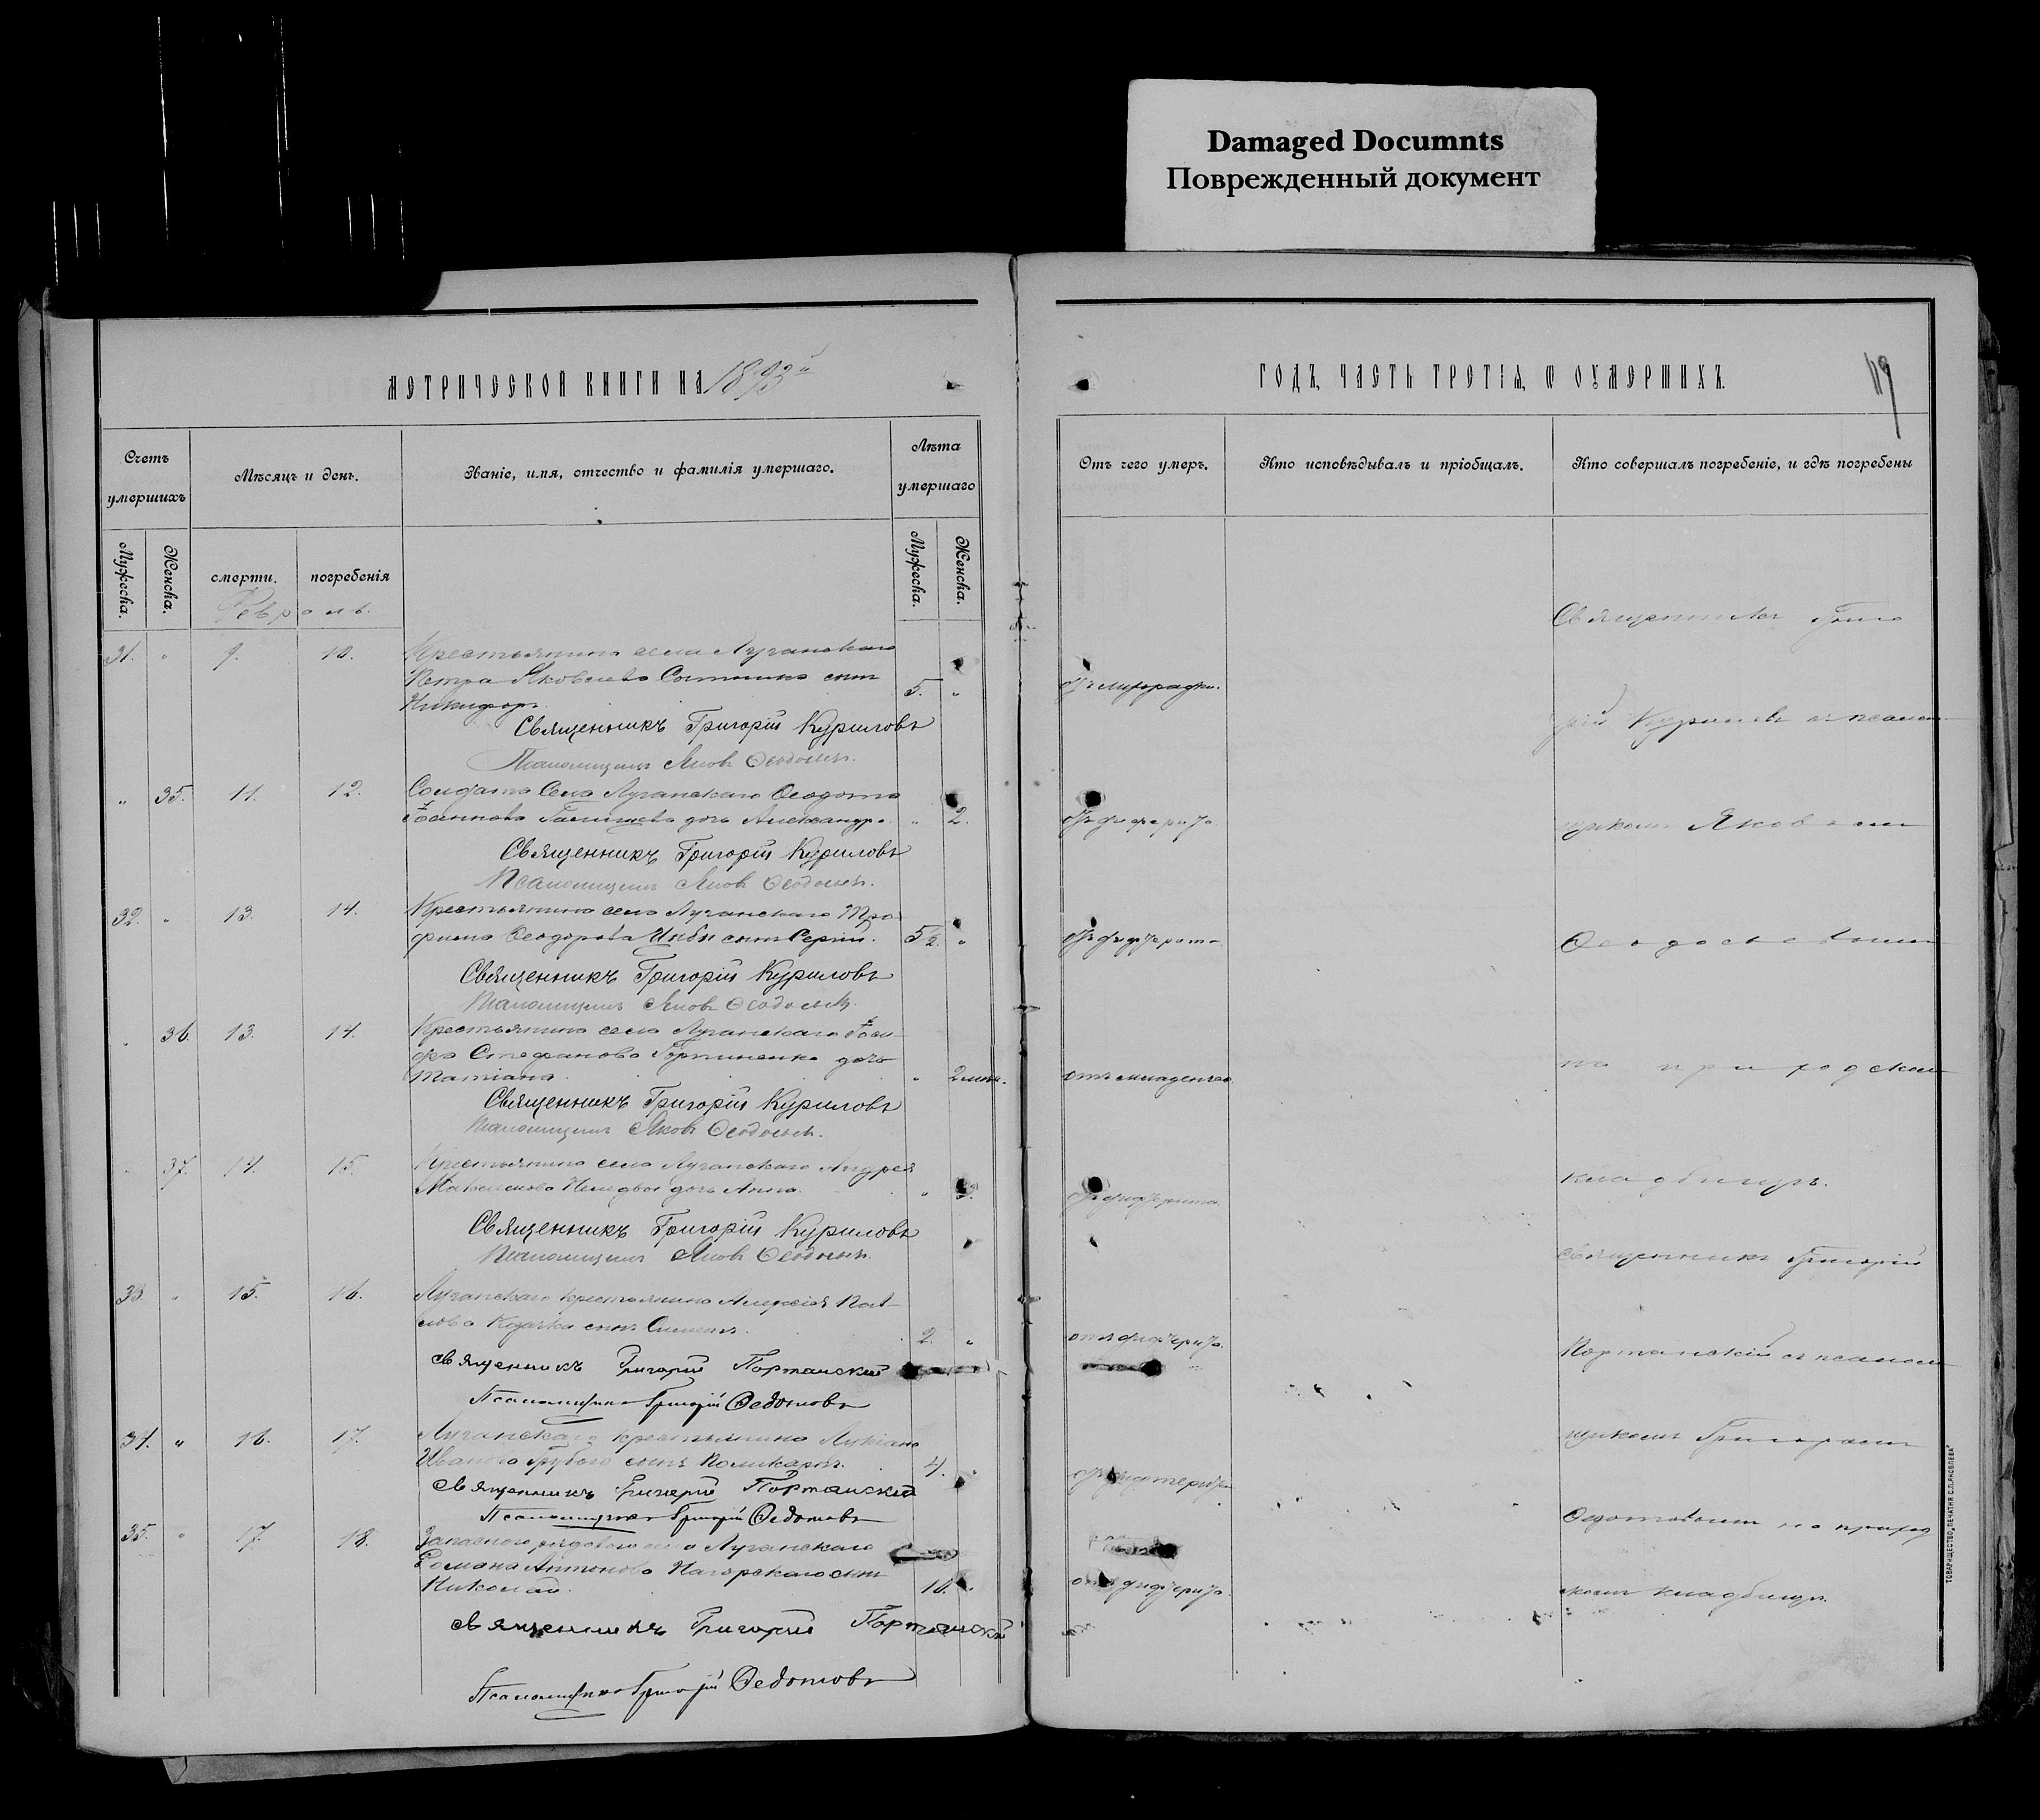 Damaged Documnts
Поврежденный документ
МЕТРИЧЕСКОЙ КНИГИ НА 1893й
ГОДЪ, ЧАСТЬ ТРЕТІЯ, Ѿ ОУМЕРШИХЪ.
119
Счетъ умершихъ
Мѣсяцъ и день.
Званіе, имя, отчество и фамилія умершаго.
Лѣта умершаго
Отъ чего умеръ.
Кто исповѣдывалъ и пріобщалъ.
Кто совершалъ погребеніе, и гдѣ погребены
Мужеска.
Женска.
смерти.
погребенія
Мужеска.
Женска.
Февраль.
31. " 9. 10. Крестьянина села Луганскаго
Петра Яковлева сынъ
Никифоръ. 5. "
Священникъ Григорій Куриловъ
Псаломщикъ Яковъ
" 35. 11. 12. Солдата села Луганскаго Ѳеодота
Іоаннова дочь Александра. " 2.
Священникъ Григорій Куриловъ
Псаломщикъ Яковъ
32. " 13. 14. Крестьянина села Луганскаго Тро-
фима Ѳеодорова Цыбы сынъ Сергій. 5½. "
Священникъ Григорій Куриловъ
Псаломщикъ Яковъ
" 36. 13. 14. Крестьянина села Луганскаго Іоси-
фа Стефанова дочь
Татіана. " 2
Священникъ Григорій Куриловъ
Псаломщикъ Яковъ
" 37. 14. 15. Крестьянина села Луганскаго Андрея
дочь Анна.
Священникъ Григорій Куриловъ
Псаломщикъ Яковъ
33. " 15. 16. Луганскаго крестьянина Алексія Пав-
лова Козачка сынъ Симеонъ. 2. "
Священникъ Григорій Портанскій
Псаломщикъ Григорій Ѳедотовъ
34. " 16. 17. Луганскаго крестьянина Лукіана
Иванова Грубаго сынъ Поликарпъ. 4. "
Священникъ Григорій Портанскій
Псаломщикъ Григорій Ѳедотовъ
35. " 17. 18. Запаснаго рядового села Луганскаго
Романа Антонова Нагорскаго сынъ
Николай. 10. "
Священникъ Григорій Портанскій
Псаломщикъ Григорій Ѳедотовъ
Отъ лихорадки.
Отъ дифтерита
Отъ дифтерита
отъ младенческ.
Отъ дифтерита
отъ дифтерита.
Отъ дифтерита
отъ дифтерита.
Священникъ Григо
рій Куриловъ съ псалом
щикомъ Яковомъ
на приходскомъ
кладбищѣ.
Священникъ Григорій
Портанскій съ псалом
щикомъ Григоріемъ
Ѳедотовымъ на приход
скомъ кладбищѣ.
ТОВАРИЩЕСТВО „ПЕЧАТНЯ С.П.ЯКОВЛЕВА"